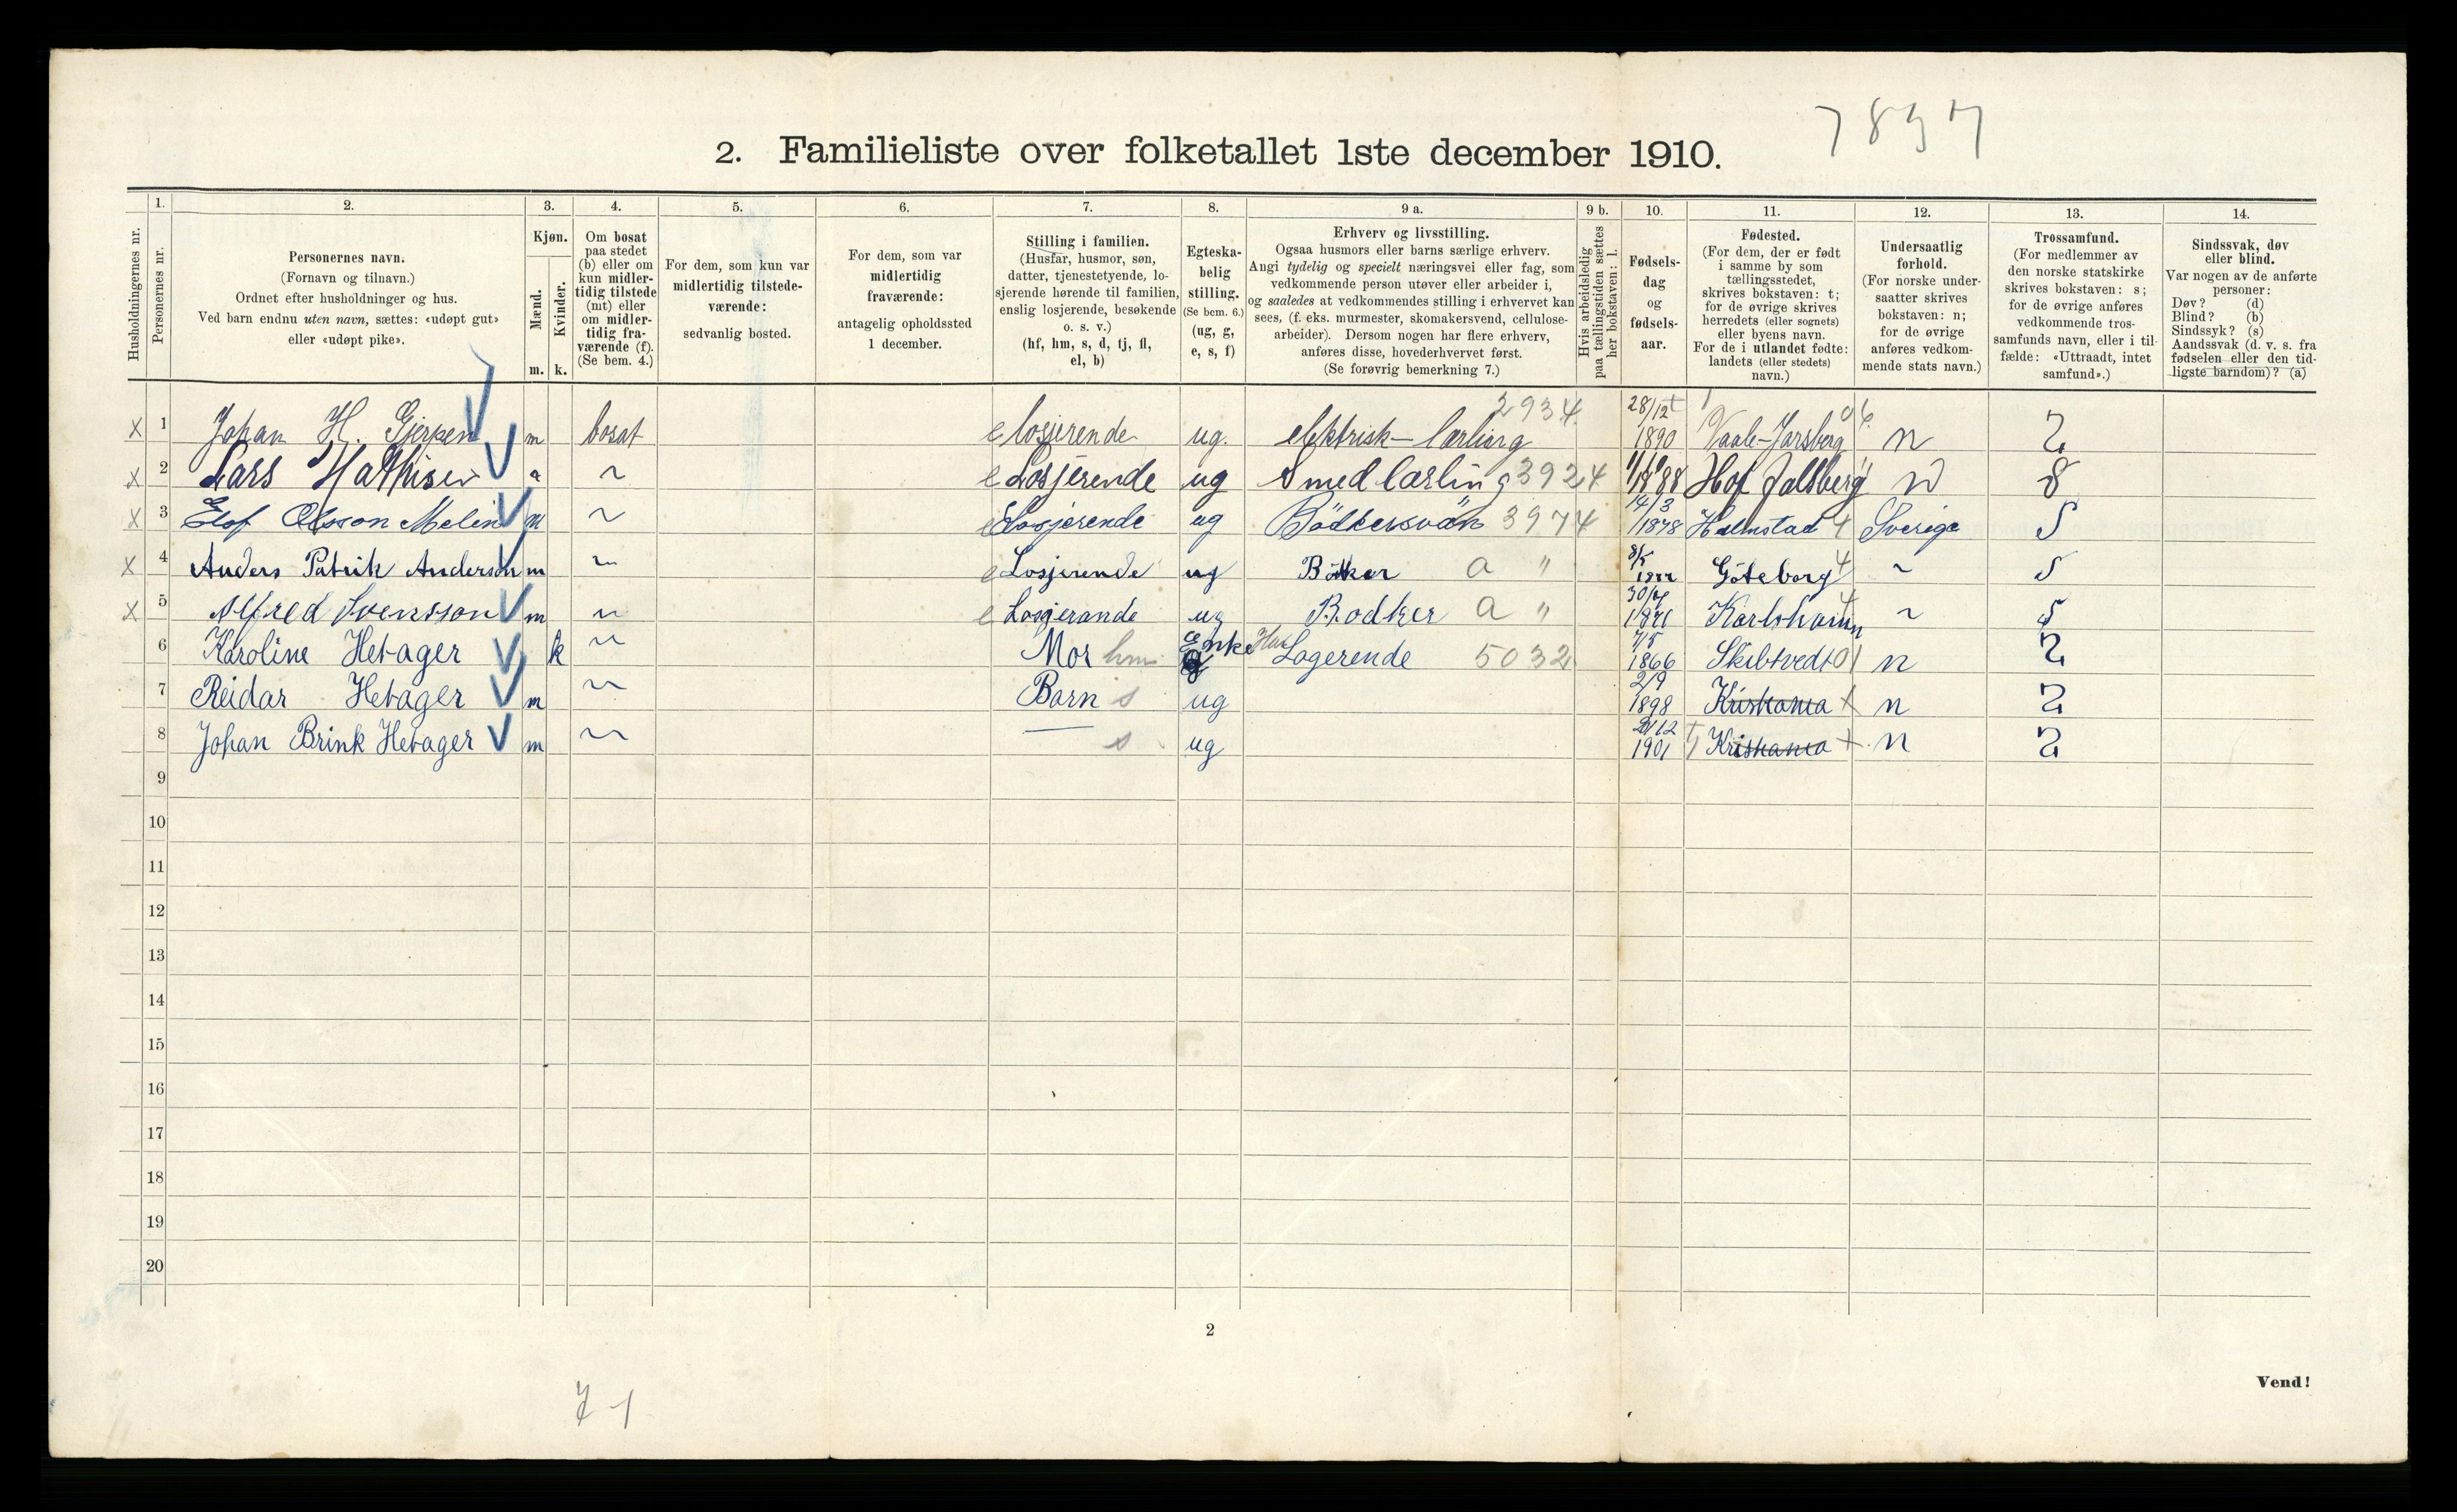 7897
2. Familieliste over folketallet 1ste december 1910.
Husholdningernes nr.
Personernes nr.
1.
2.
Personernes navn.
(Fornavn og tilnavn.)
Ordnet efter husholdninger og hus.
Ved barn endnu uten navn, sættes: «udøpt gut»
eller «udøpt pike».
3.
Kjøn.
Mænd.
Kvinder.
m. k.
4.
Om bosat
paa stedet
(b) eller om
kun midler-
tidig tilstede
(mt) eller
om midler-
tidig fra-
værende (f).
(Se bem. 4.)
5.
For dem, som kun var
midlertidig tilstede-
værende:
sedvanlig bosted.
6.
For dem, som var
midlertidig
fraværende:
antagelig opholdssted
1 december.
7.
Stilling i familien.
(Husfar, husmor, søn,
datter, tjenestetyende, lo-
sjerende hørende til familien,
enslig losjerende, besøkende
o. s. v.)
(hf, hm, s, d, tj, fl,
el, b)
8.
Egteska-
belig
stilling.
(Se bem. 6.)
(ug, g,
e, s, f)
9 a.
Erhverv og livsstilling.
Ogsaa husmors eller barns særlige erhverv.
Angi tydelig og specielt næringsvei eller fag, som
vedkommende person utøver eller arbeider i,
og saaledes at vedkommendes stilling i erhvervet kan
sees, (f. eks. murmester, skomakersvend, cellulose-
arbeider). Dersom nogen har flere erhverv,
anføres disse, hovederhvervet først.
(Se forøvrig bemerkning 7.)
9 b.
Hvis arbeidsledig
paa tællingstiden sættes
her bokstaven: l.
10.
Fødsels-
dag
og
fødsels-
aar.
11.
Fødested.
(For dem, der er født
i samme by som
tællingsstedet,
skrives bokstaven: t;
for de øvrige skrives
herredets (eller sognets)
eller byens navn.
For de i utlandet fødte:
landets (eller stedets)
navn.)
12.
Undersaatlig
forhold.
(For norske under-
saatter skrives
bokstaven: n;
for de øvrige
anføres vedkom-
mende stats navn.)
13.
Trossamfund.
(For medlemmer av
den norske statskirke
skrives bokstaven: s;
for de øvrige anføres
vedkommende tros-
samfunds navn, eller i til-
fælde: «Uttraadt, intet
samfund».)
14.
Sindssvak, døv
eller blind.
Var nogen av de anførte
personer:
Døv? (d)
Blind? (b)
Sindssyk? (s)
Aandssvak (d. v. s. fra
fødselen eller den tid-
ligste barndom)? (a)
x 1 Johan H. Gjerpen m bosat e losjerende ug. elektrisk- lærling 2934 28/12 1890 Vaale-Jarsberg 06 n s
x 2 Lars Mathisen ~ e Losjerende ug Smed lærling 3924 1888 Hof n s
x 3 Elof Olsson Melin m ~ e Losjerende ug Bödkersvän 3974 14/3 1878 Halmstad 4 Sverige S
x 4 Anders Patrik Anderson m ~ e Losjerende ug Böker a " Göteborg 4 ~ S
x 5 Alfred Svensson m ~ e Losjerande ug Bodker a " 30/4 1871 Karlshamn ~ S
6 Karoline Hetager k ~ Mor hm Enke Har Logerende 5032 7/5 1866 Skibtvedt 01 n s
7 Reidar Hetager m ~ Barn s ug 2/9 1898 Kristiania t n s
8 Johan Brink Hetager m ~ — s ug 21/12 1901 Kristiania t n s
9
10
11
12
13
14
15
16
17
18
19
20
2
Vend!
7-1